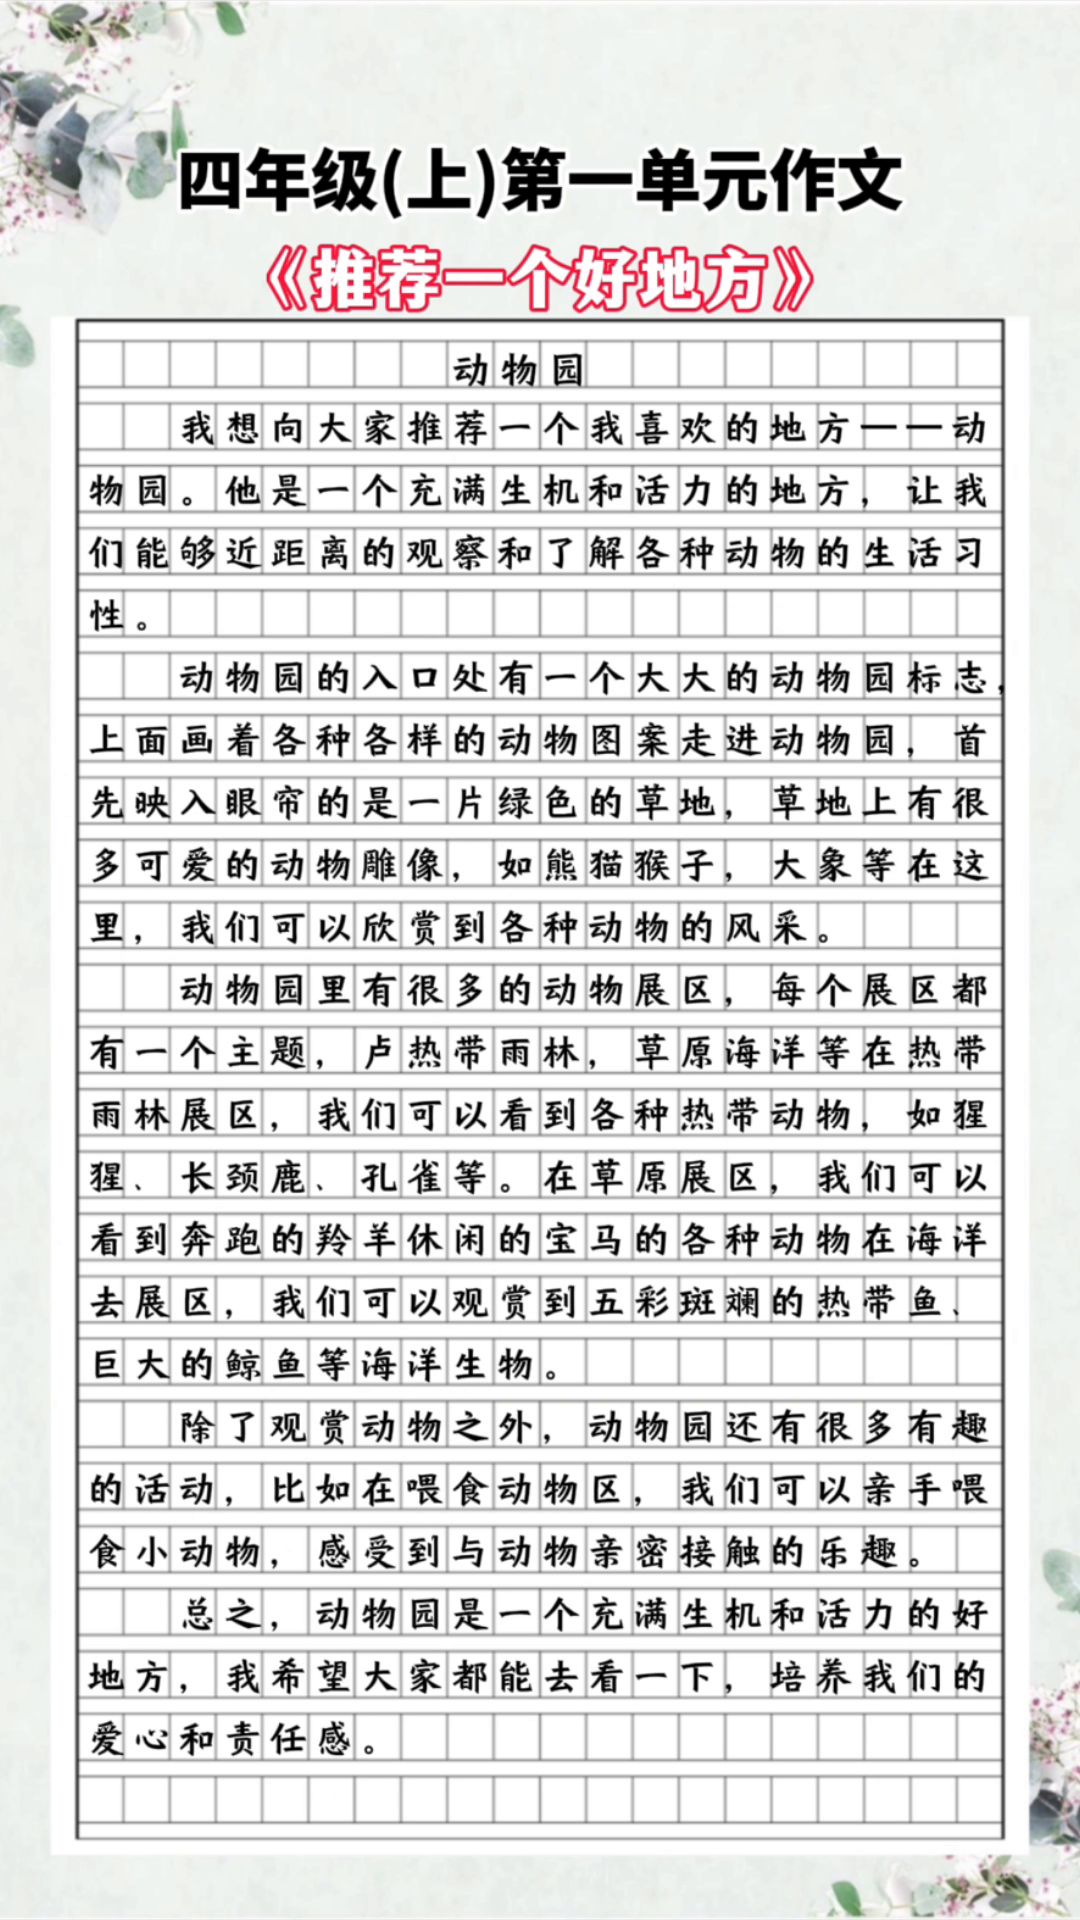 四年级(上)第一单元作文
《推荐一个好地方》
动物园
我想向大家推荐一个我喜欢的地方——动
物园。他是一个充满生机和活力的地方，让我
们能够近距离的观察和了解各种动物的生活习
性。
动物园的入口处有一个大大的动物园标志，
上面画着各种各样的动物图案走进动物园，首
先映入眼帘的是一片绿色的草地，草地上有很
多可爱的动物雕像，如熊猫猴子，大象等在这
里，我们可以欣赏到各种动物的风采。
动物园里有很多的动物展区，每个展区都
有一个主题，卢热带雨林，草原海洋等在热带
雨林展区，我们可以看到各种热带动物，如猩
猩、长颈鹿、孔雀等。在草原展区，我们可以
看到奔跑的羚羊休闲的宝马的各种动物在海洋
去展区，我们可以观赏到五彩斑斓的热带鱼、
巨大的鲸鱼等海洋生物。
除了观赏动物之外，动物园还有很多有趣
的活动，比如在喂食动物区，我们可以亲手喂
食小动物，感受到与动物亲密接触的乐趣。
总之，动物园是一个充满生机和活力的好
地方，我希望大家都能去看一下，培养我们的
爱心和责任感。